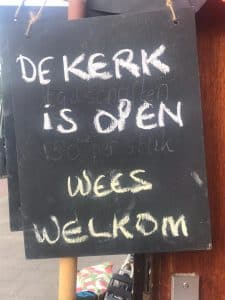 DE KERK
IS OPEN
WEES
WELKOM